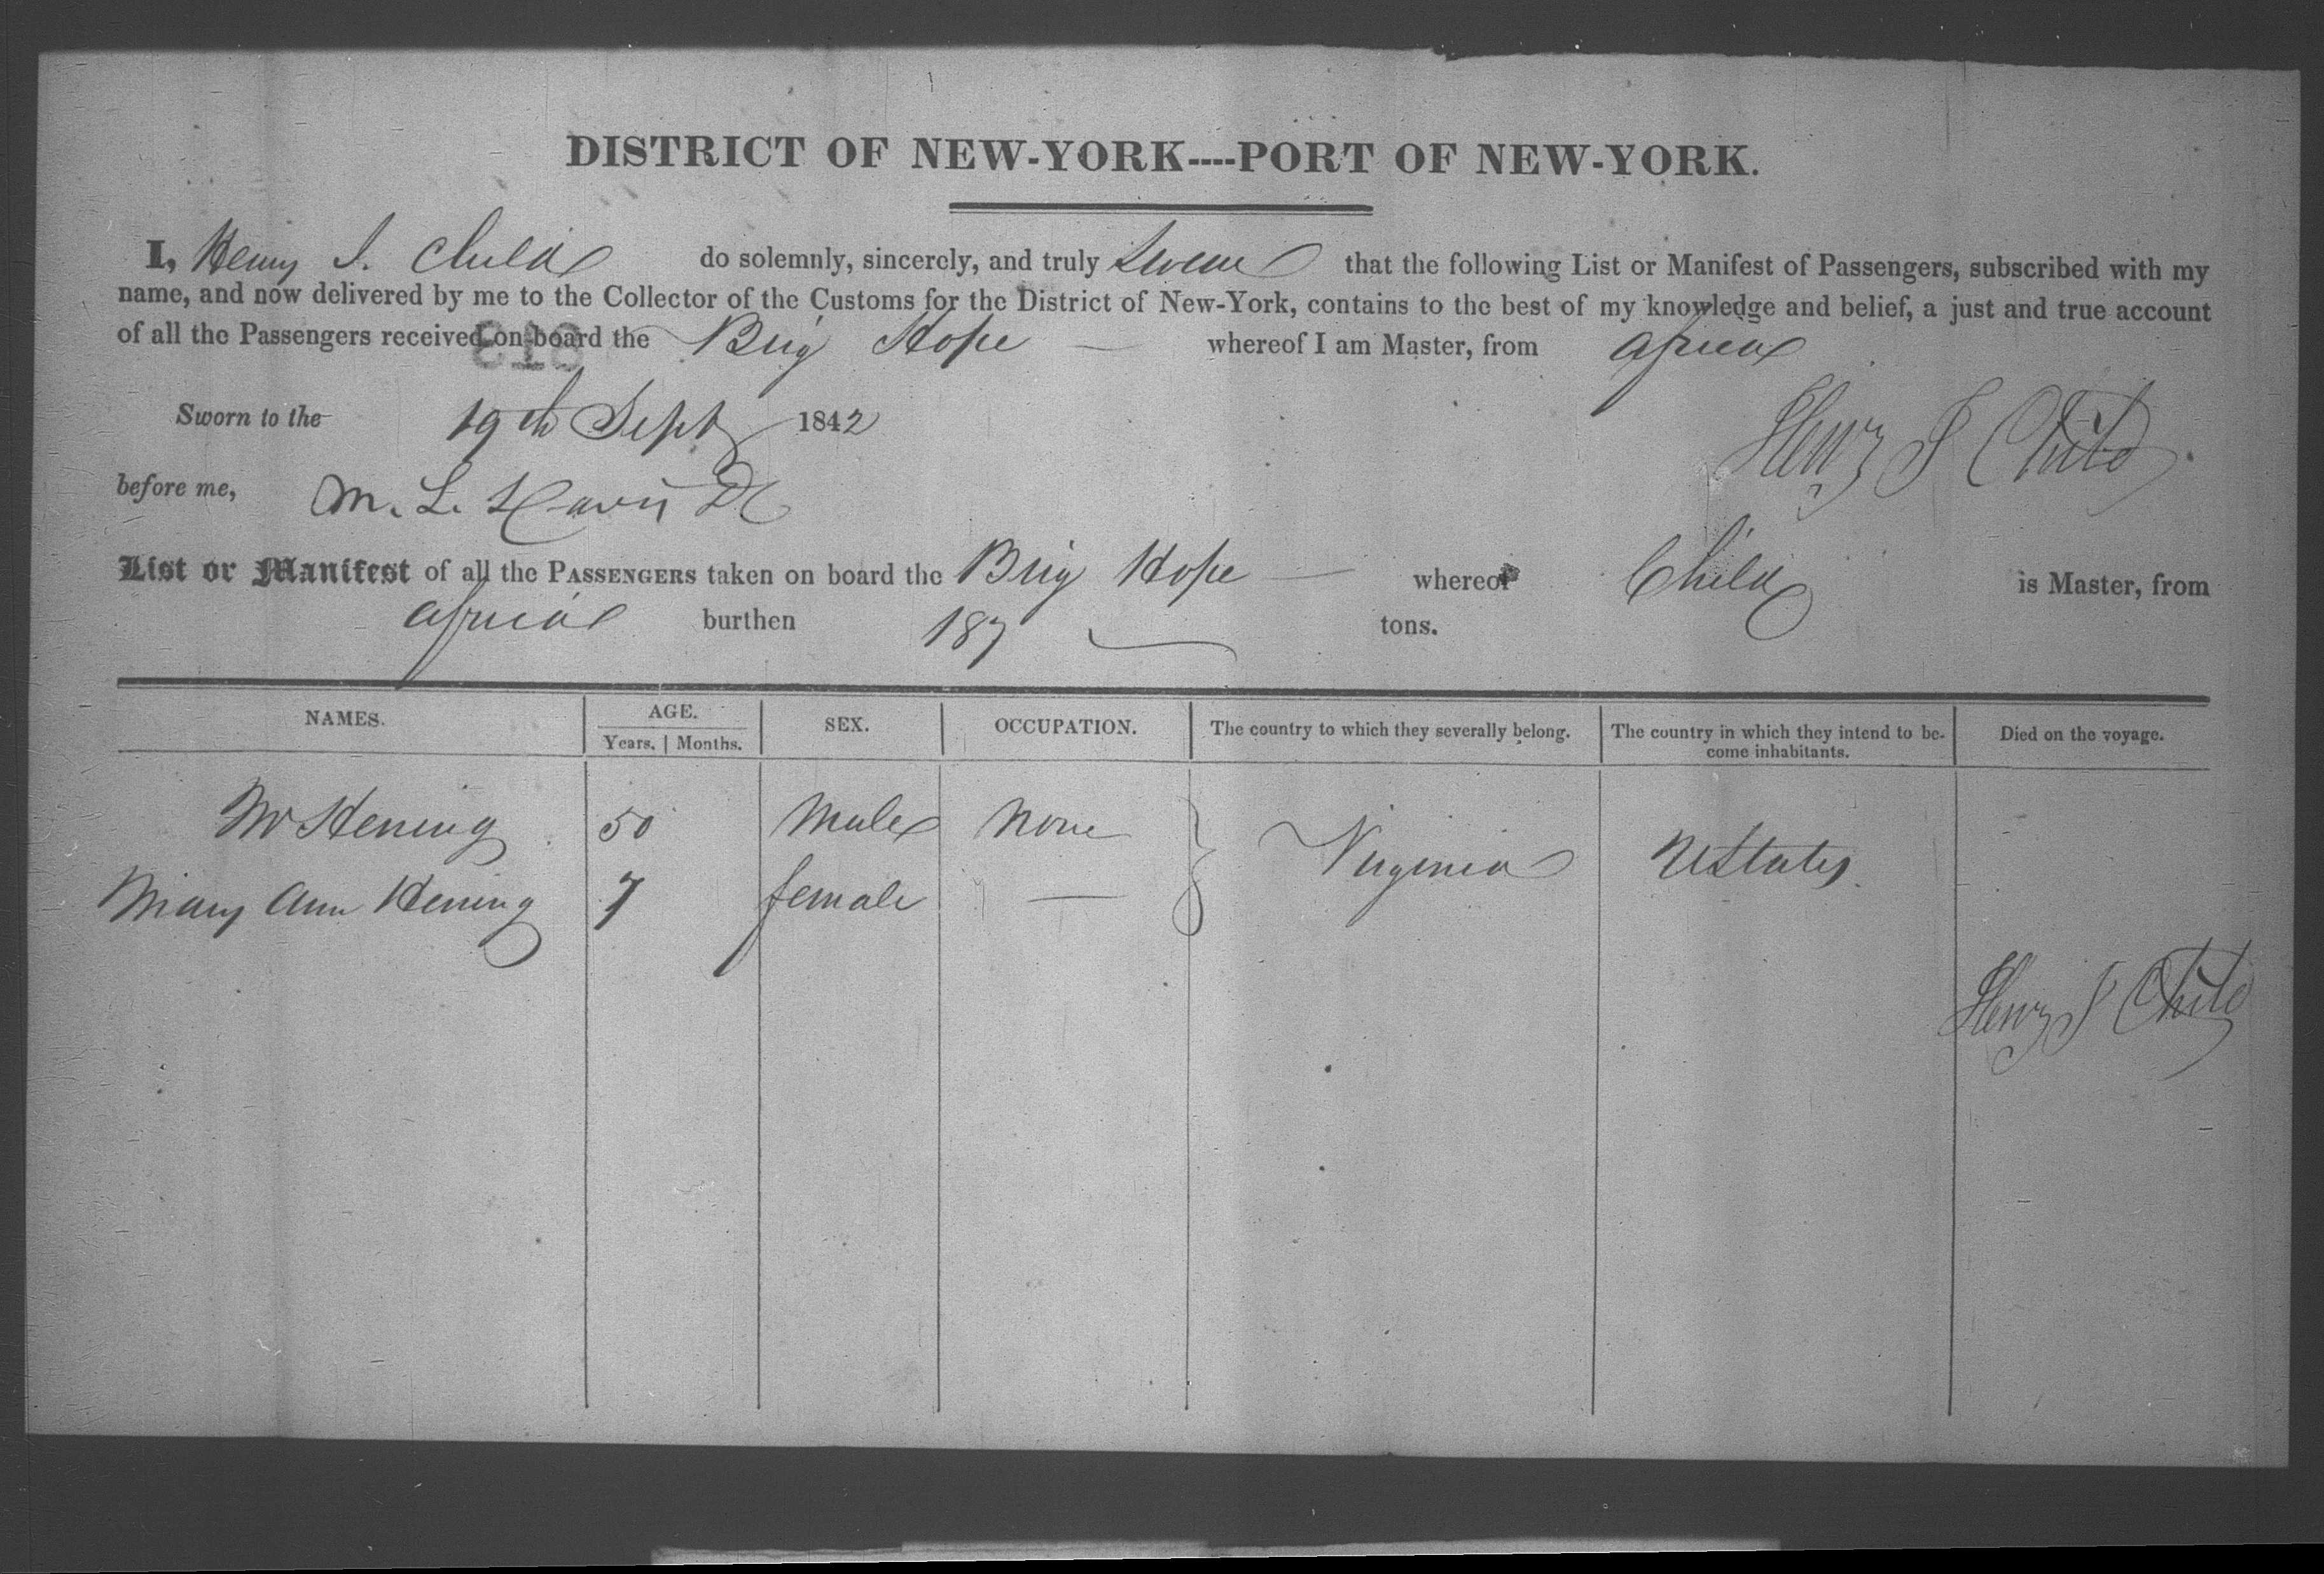 DISTRICT OF NEW-YORK----PORT OF NEW-YORK.
I, Henry S. Child do solemnly, sincerely, and truly Swear that the following List or Manifest of Passengers, subscribed with my
name, and now delivered by me to the Collector of the Customs for the District of New-York, contains to the best of my knowledge and belief, a just and true account
of all the Passengers received on board the Brig Hope — whereof I am Master, from Africa
Sworn to the 19th Sept 1842
Henry S Child
before me, M. L.
List or Manifest of all the PASSENGERS taken on board the Brig Hope — whereof Child is Master, from
Africa burthen 187 tons.
NAMES. AGE. SEX. OCCUPATION. The country to which they severally belong. The country in which they intend to be- Died on the voyage.
Years. | Months. come inhabitants.
Mr Hening 50 Male None Virginia UStates
Mary Ann Hening 7 female —
Henry S Child